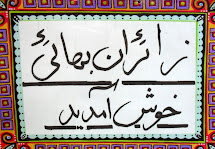 زائران بهائی
خوش آمدید